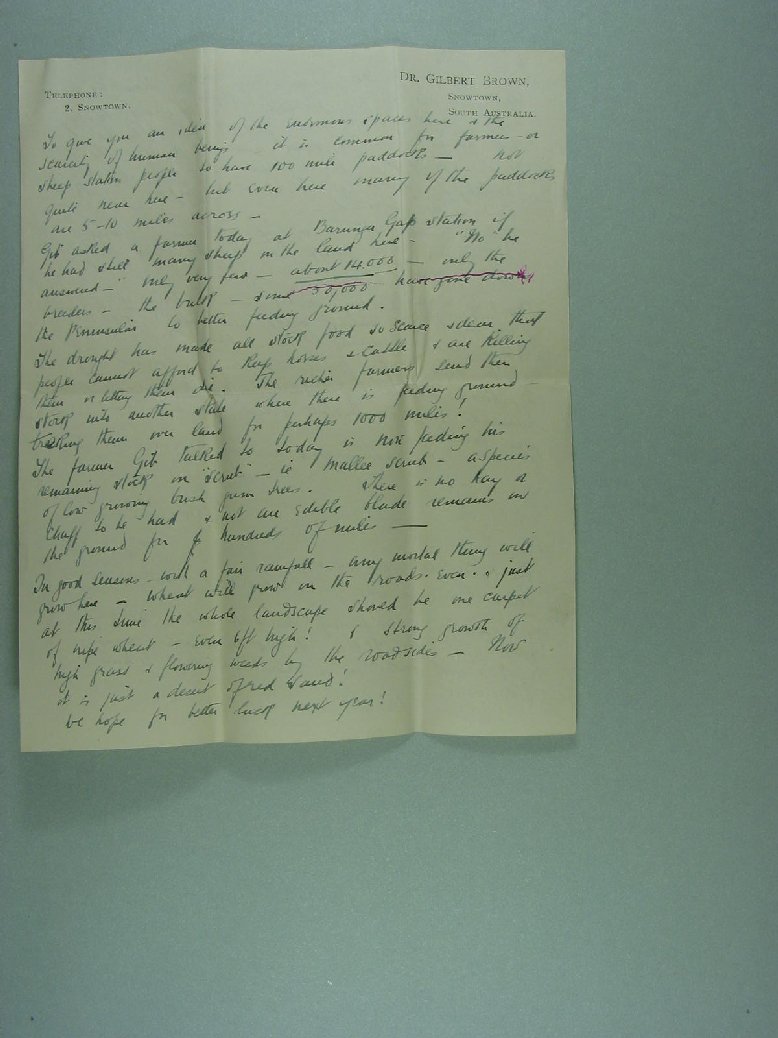 TELEPHONE:
2, SNOWTOWN.
DR. GILBERT BROWN,
SNOWTOWN,
SOUTH AUSTRALIA.
To give you an idea of the enormous spaces here & the
scarcity of human beings it is common for farmers or
sheep station people to have 100 mile paddocks — not
quite near here — but even here many of the paddocks
are 5-10 miles across —
Gib asked a farmer today at Barunga Gap station if
he had still many sheep on the land here — "No" he
answered — "only very few — about 14,000 — only the
breeders — the bulk — some 30,000 have gone down to
the Peninsular to better feeding ground.
The drought has made all stock food so scarce & dear that
people cannot afford to keep horses & cattle & are killing
them or letting them die. The richer farmers send their
stock into another state where there is feeding ground —
tracking them over land for perhaps 1000 miles!
The farmer Gib talked to today is now feeding his
remaining stock on "scrub" — ie mallee scrub — a species
of low growing bush gum trees. There is no hay or
chaff to be had & not one edible blade remains on
the ground for hundreds of miles —
In good seasons — with a fair rainfall — any mortal thing will
grow here — wheat will grow on the roads even & just
at this time the whole landscape should be one carpet
of ripe wheat — even 6ft high! & strong growth of
high grass & flowering weeds by the roadsides — Now
it is just a desert of red sand!
We hope for better luck next year!